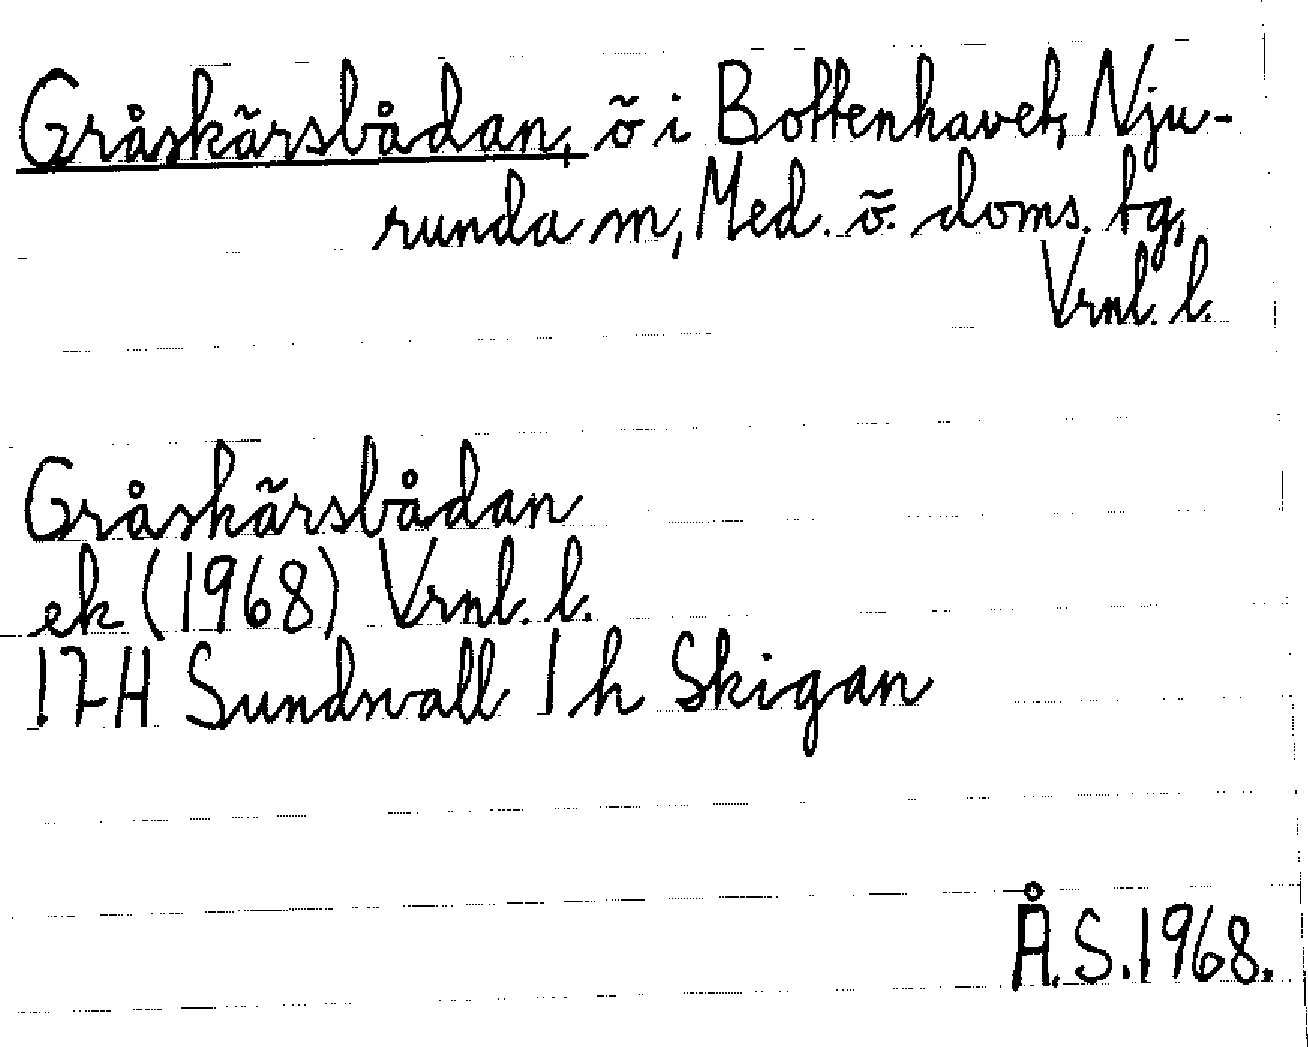 Gråskärsbådan, ö i Bottenhavet, Nju-
runda m, Med. ö. doms. tg,
Vrnl. l.
Gråskärsbådan
ek (1968) Vrnl. l.
17H Sundsvall 1h Skigan
Å.S.1968.